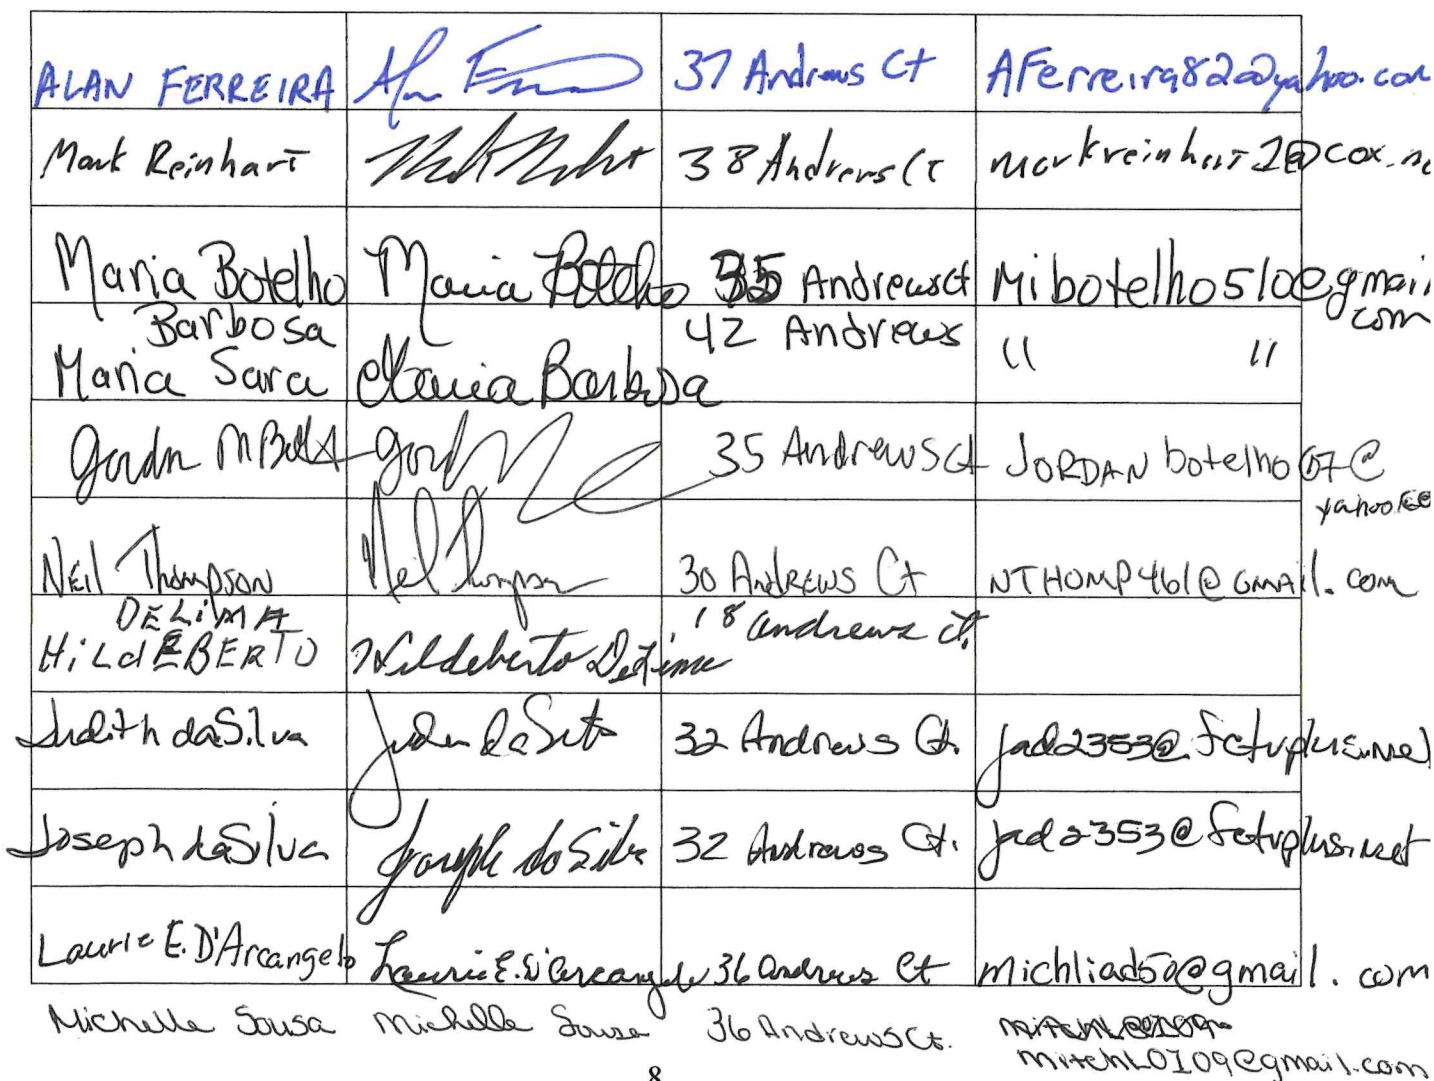 ALAN FERREIRA Alan F 37 Andrews Ct AFerreira82@yahoo.com
Mark Reinhart 38 Andrews Ct markreinhart2@cox.ne
Maria Botelho Maria Botelho 35 Andrews Ct Mibotelho510@gmail
com
Barbosa 42 Andrews
Maria Sara Maria Barbosa " "
35 Andrews Ct JORDAN botelho07@
yahoo
Neil Thompson Neil Thompson 30 Andrews Ct NTHOMP461@GMAIL.com
DELIMA 18 Andrews ct.
HiLdEBERTO Hildeberto DeLima
Judith daSilva 32 Andrews Ct. jad2353@fctvplus.net
Joseph daSilva Joseph daSilva 32 Andrews Ct. jad2353@fctvplus.net
Laurie E. D'Arcangelo Laurie E. D'Arcangelo 36 Andrews Ct michliad50@gmail.com
Michelle Sousa Michelle Sousa 36 Andrews Ct.
mitchL0109@gmail.com
8